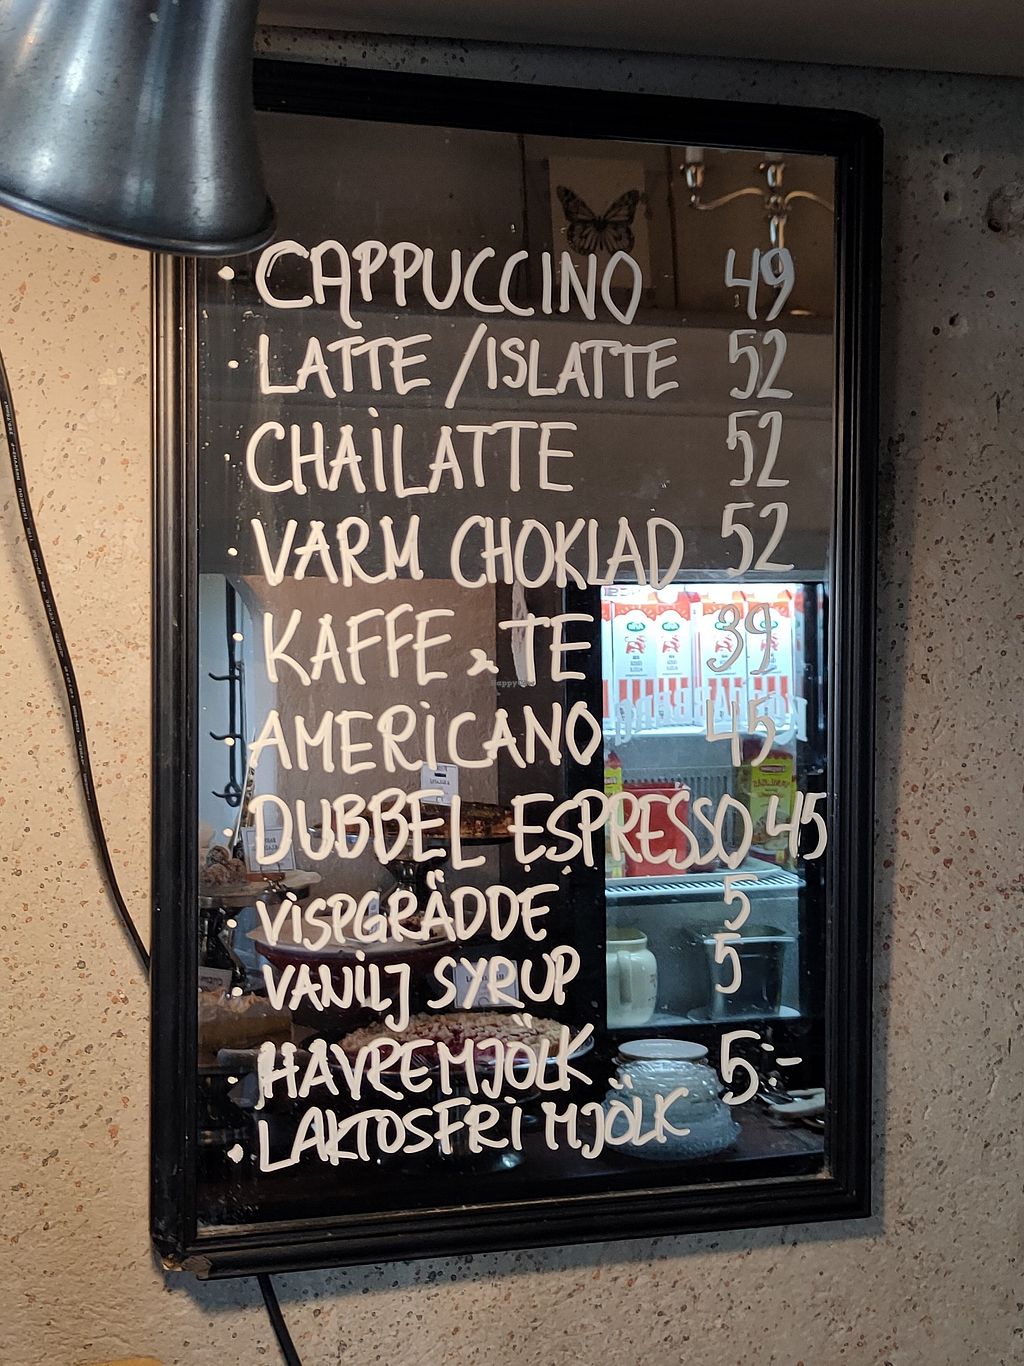 • CAPPUCCINO 49
• LATTE / ISLATTE 52
• CHAILATTE 52
• VARM CHOKLAD 52
• KAFFE & TE 39
• AMERICANO 45
• DUBBEL ESPRESSO 45
• VISPGRÄDDE 5
• VANILJ SYRUP 5
• HAVREMJÖLK 5:-
• LAKTOSFRI MJÖLK